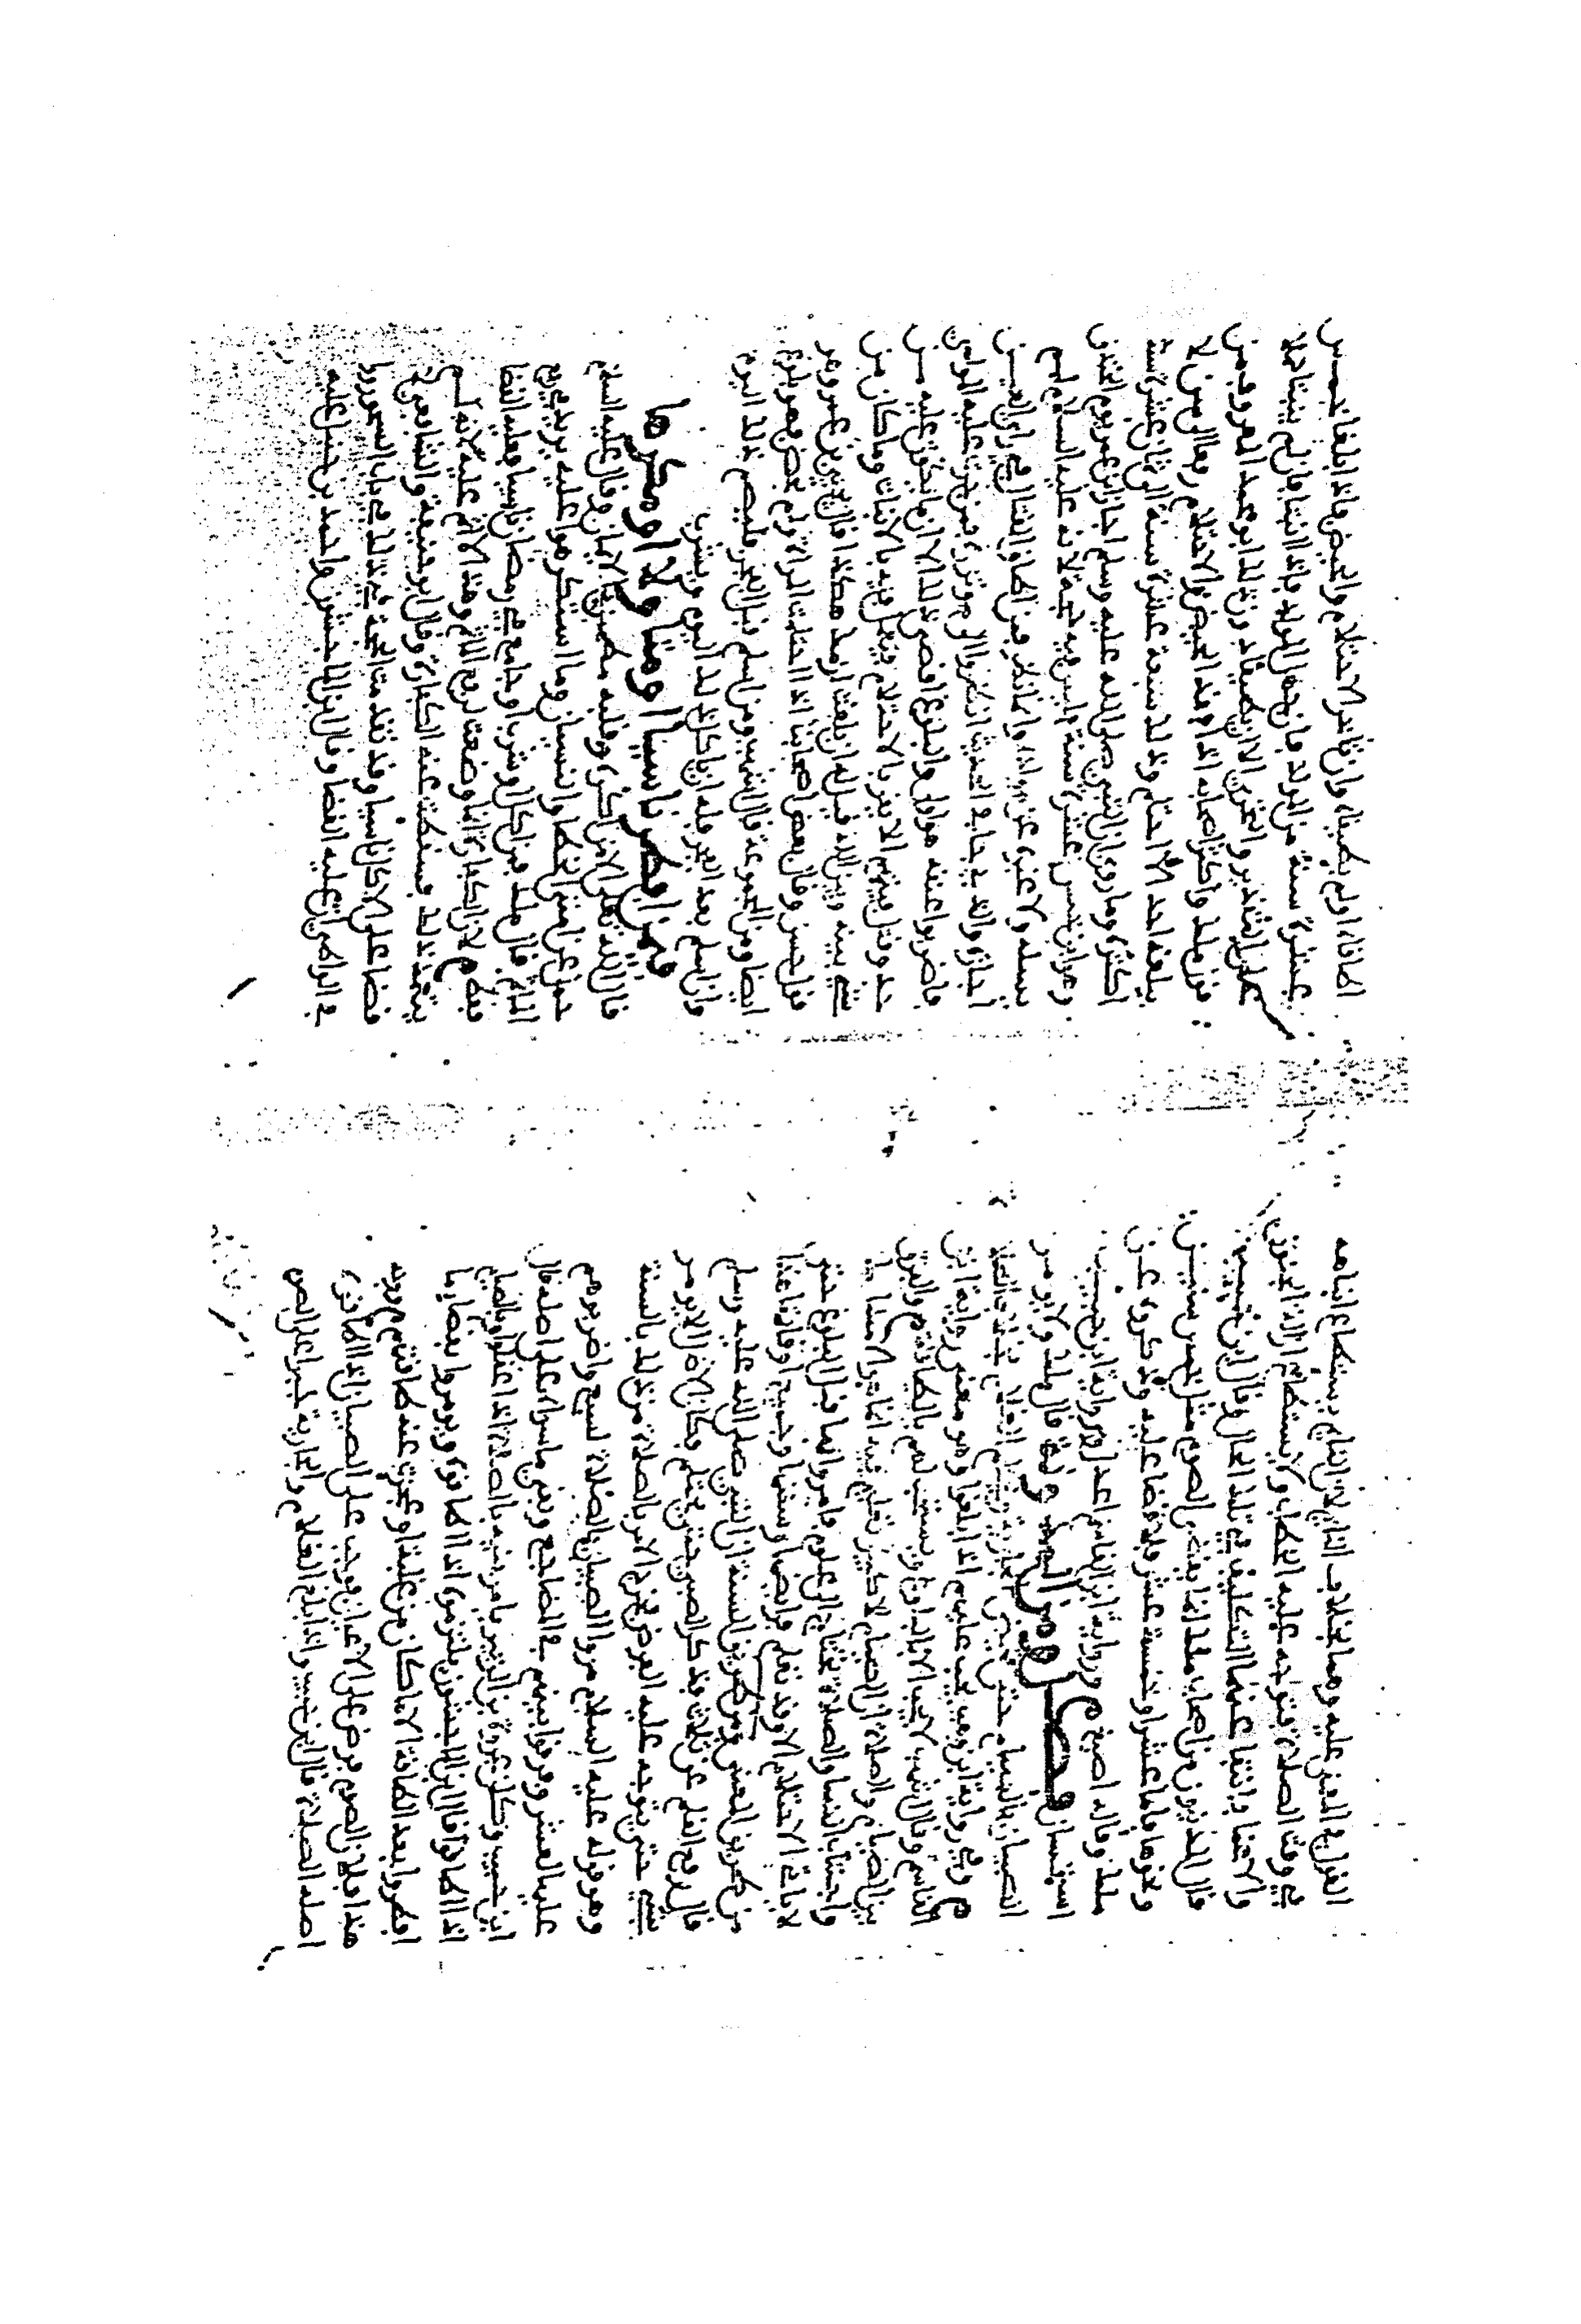 الفرق في المغمى عليه وهما بخلاف النائم لان النائم يستطاع انباهه
في وقت الصلاة فيتوجه عليه الخطاب ولا يستطاع ازالة الجنون
والاغما وانتفا عنهما التكليف في تلك الحال وقال ابن حبيب
قال المدنيون من اصحاب ملك انما يقضي الصوم مثل خمس سنين
ونحوها فاما عشرا او خمسة عشر فلا قضا عليه وذكروه عن
ملك وقاله اصبغ م ورواية ابن القاسم اعدل ورواية ابن حبيب
استحسان فصل ومن المدونة قال ملك ولا يومر
الصبيان بالصيام حتى تحيض الجارية ويحتلم الغلام بخلاف الصلاة
م وفي رواية ابن وهب يجب عليهم اذا بلغوا وهو معنى رواية ابن
القاسم وقال اشهب لا يجب الا بالبلوغ ويستحب لهم بالطاقة م والفرق
بين الصيام والصلاة ان الصيام لا كبير تعليم فيه انما هو الامساك
واجتناب النسا والصلاة يحتاج الى علوم فامروا بها قبل البلوغ حتى
لا ياتي الاحتلام الا وقد تعلم فرايضها وسننها وجميع اوقاتها هذا
من طريق المعنى ومن طريق السنة ان النبي صلى الله عليه وسلم
قال رفع القلم عن ثلاث فذكر الصبي حتى يحتلم فكان لا يومر
بشي حتى يتوجه عليه الفرض فخرج الامر بالصلاة من ذلك بالسنة
وهو قوله عليه السلام مروا الصبيان بالصلاة لسبع واضربوهم
عليها لعشر وفرقوا بينهم في المضاجع وبقي ما سواه على اصله قال
ابن حبيب وكان عروة بن الزبير يامر بنيه بالصلاة اذا عقلوا وبالصيام
اذا اطاقوا وقال ابن الماجشون يلتزموه اذا اطاقوه ويومروا بقضا ما
افطروا بعد الطاقة الا ما كان من علة او عجزت عنه طاقتهم م ووجه
هذا فلان الصوم فرض على الاعيان فوجب على الصبيان اذا اطاقوه
اصله الصلاة قال ابن حبيب واذا بلغ الغلام والجارية جبرا على الصوم
اطاقاه او لم يطيقاه وان تاخر الاحتلام والحيض فاذا بلغا خمس
عشرة سنة من المولد فان جهل المولد فاذا انبتا فان لم ينبتا فلا
على التقدير والتحري الا ان يطيقا دون ذلك ابو محمد المعروف من
قول ملك واكثر اصحابه اذا وقد الحيض والاحتلام رفعا الى سن لا
يبلغه احد الا احتلم وذلك سبعة عشرة سنة الى ثمان عشرة سنة
اكثره وما روي ان النبي صلى الله عليه وسلم اجاز ابن عمر يوم الخندق
وهو ابن خمس عشرة سنة وليس فيه حجة لانه عليه السلام لم
يسله ولا غيره عن مولده وانما نظر من اطاق القتال في راي العين
اجازه والذي جا به الحديث انظروا الى مؤتزره فمن جرت عليه المواسي
فاضربوا عنقه هو اولى والبلوغ اقصى ذلك الا ان ما يكون عليه من
حد وقتل فيتهم الا يقر بالاحتلام فيعمل فيه بالانبات وما كان من
شي بينه وبين الله قيل له ان بلغت لزمك هكذا قال يحيى بن عمر وغيره
قول حسن وقال بعض اصحابنا اذا احتلمت المراة ولم تحض فهو بلوغ
ايضا ومن المجموعة قال اشهب ومن اسلم قبل الفجر فليصم ذلك اليوم
وان اسلم بعد الفجر فله ان ياكل ذلك اليوم ويشرب
فيمن افطر ناسيا او متاولا او مكرها
قال الله تعالى الا من اكره وقلبه مطمئن بالايمان وقال عليه السلام
حمل عن امتي الخطا والنسيان وما استكرهوا عليه يريد في رفع
الاثم قال ملك فمن اكل او شرب او جامع في رمضان ناسيا فعليه القضا
فقط م لان الكفارة انما وضعت لرفع الاثم وهذا لا اثم عليه لانه لم
يتعمد ذلك فسقطت عنه الكفارة وقال ابو حنيفة والشافعي لا
قضا على الاكل ناسيا وقد تقدمت الحجة في ذلك في باب السحور
في الواطي ان عليه القضا وقال ابن الماجشون واحمد بن حنبل عليه